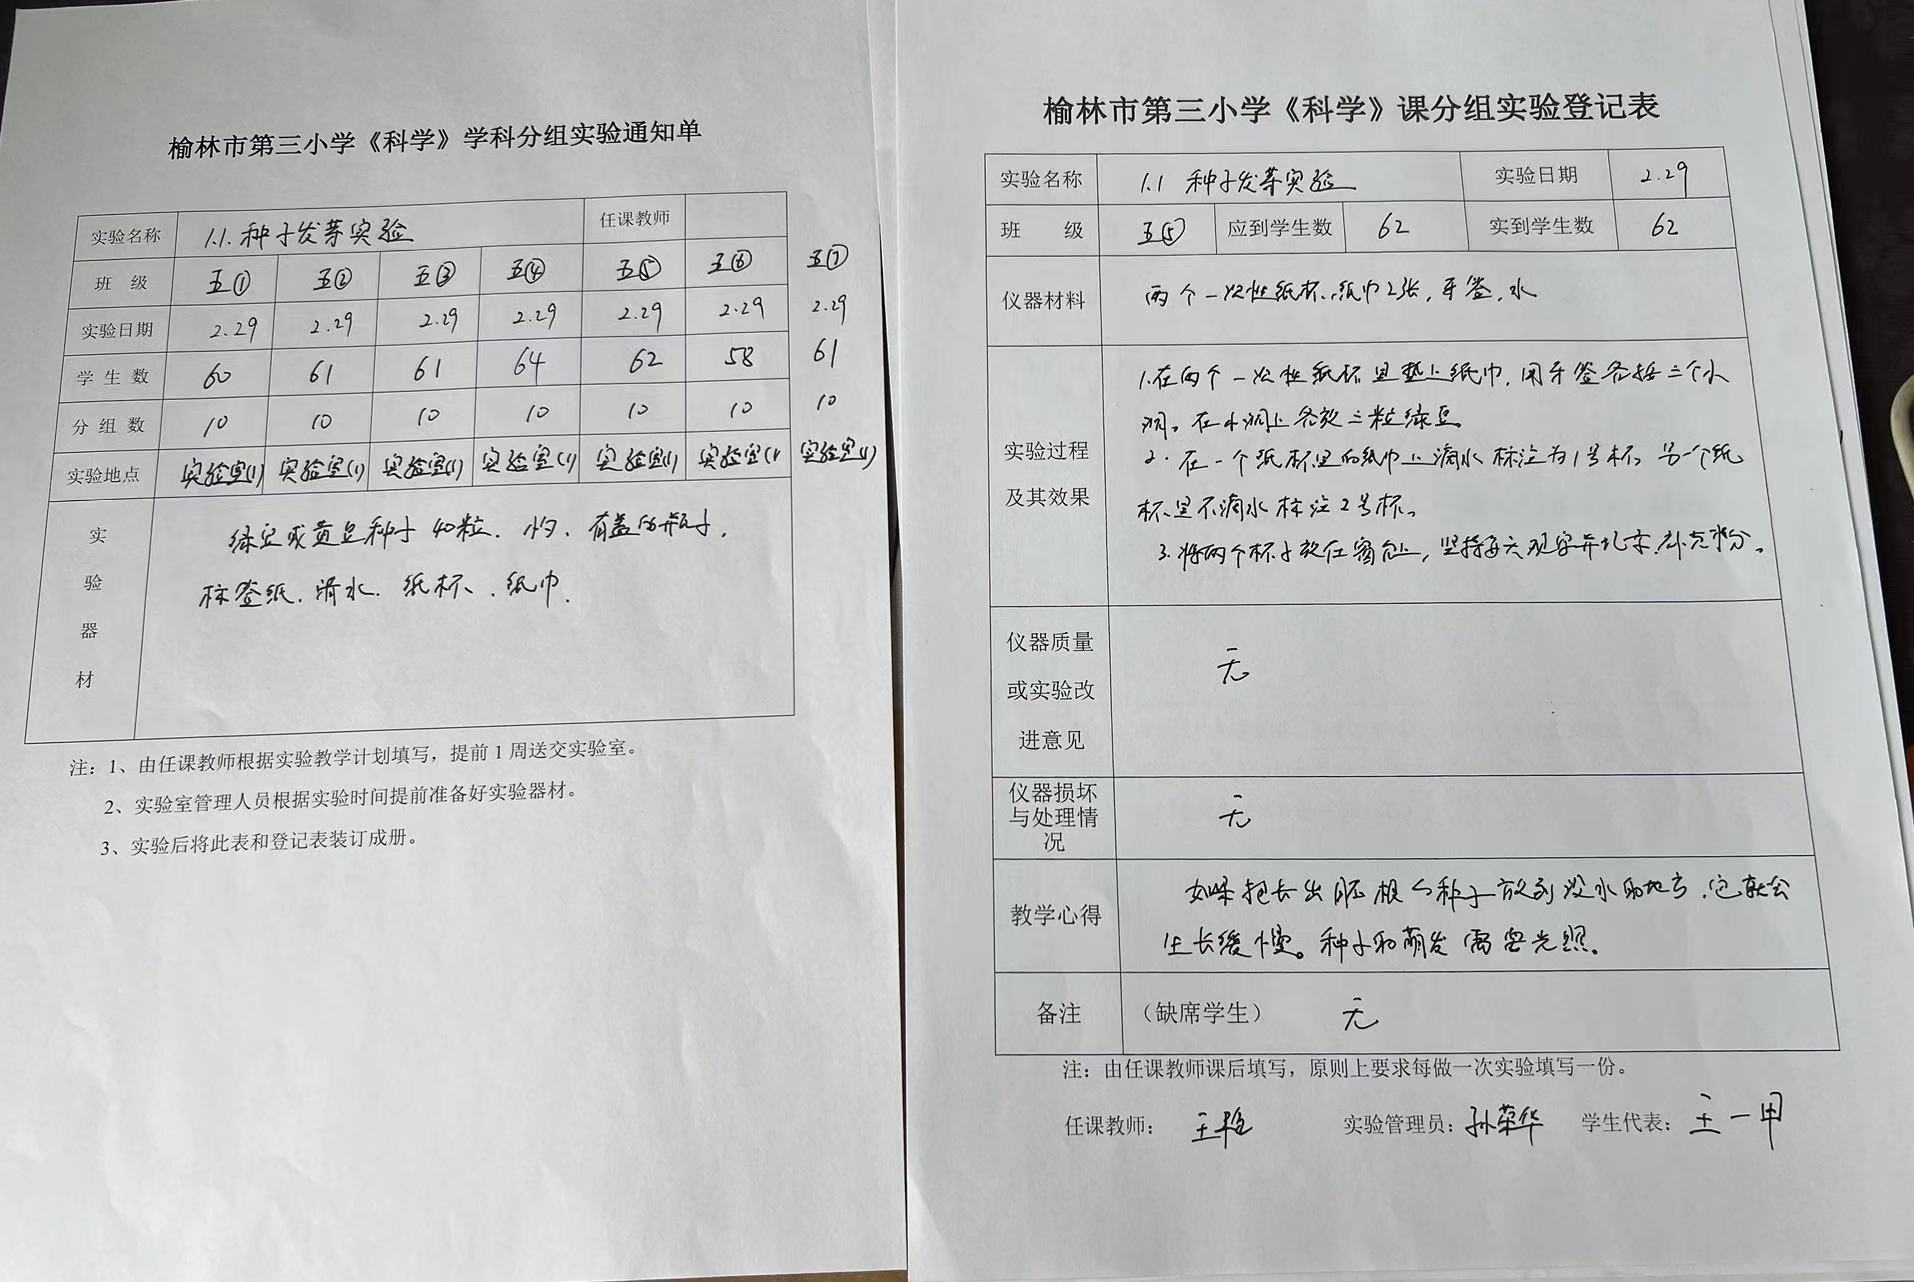 榆林市第三小学《科学》学科分组实验通知单
实验名称 1.1.种子发芽实验 任课教师
班级 五① 五② 五③ 五④ 五⑤ 五⑥ 五⑦
实验日期 2.29 2.29 2.29 2.29 2.29 2.29 2.29
学生数 60 61 61 64 62 58 61
分组数 10 10 10 10 10 10 10
实验地点 实验室(1) 实验室(1) 实验室(1) 实验室(1) 实验室(1) 实验室(1 实验室(1)
实验器材
绿豆或黄豆种子40粒、 有盖的瓶子、
标签纸、滴水、纸杯、、纸巾、
注：1、由任课教师根据实验教学计划填写，提前1周送交实验室。
2、实验室管理人员根据实验时间提前准备好实验器材。
3、实验后将此表和登记表装订成册。
榆林市第三小学《科学》课分组实验登记表
实验名称 1.1 种子发芽实验 实验日期 2.29
班级 五⑤ 应到学生数 62 实到学生数 62
仪器材料 两个一次性纸杯、纸巾2张，牙签，水
实验过程
及其效果
1.在两个一次性纸杯里垫上纸巾，用牙签各 三个小
洞。在小洞上各放三粒绿豆
2.在一个纸杯里的纸巾上滴水标注为1号杯。另一个纸
杯里不滴水标注2号杯。
3.将两个杯子放在窗台上，坚持每天观察并记录、补充水分。
仪器质量
或实验改
进意见
无
仪器损坏
与处理情
况
无
教学心得
如果把长出胚根的种子放到没水的地方，它就会
生长缓慢。种子的萌发需要光照。
备注 （缺席学生） 无
注：由任课教师课后填写，原则上要求每做一次实验填写一份。
任课教师： 王 实验管理员：孙荣华 学生代表：王一甲